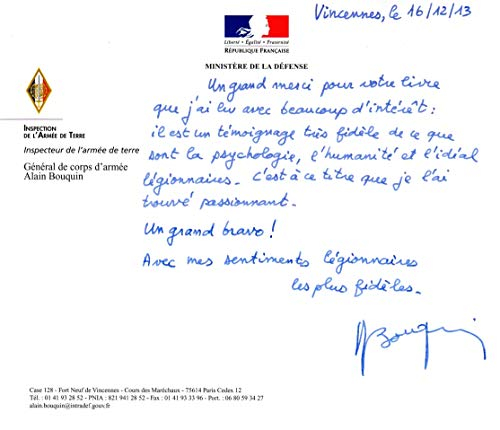 Vincennes, le 16/12/13
Liberté • Égalité • Fraternité
RÉPUBLIQUE FRANÇAISE
MINISTÈRE DE LA DÉFENSE
INSPECTION
DE L'ARMÉE DE TERRE
Inspecteur de l'armée de terre
Général de corps d'armée
Alain Bouquin
Un grand merci pour votre livre
que j'ai lu avec beaucoup d'intérêt :
il est un témoignage très fidèle de ce que
sont la psychologie, l'humanité et l'idéal
légionnaires. C'est à ce titre que je l'ai
trouvé passionnant.
Un grand bravo !
Avec mes sentiments légionnaires
les plus fidèles.
ABouquin
Case 128 - Fort Neuf de Vincennes - Cours des Maréchaux - 75614 Paris Cedex 12
Tél. : 01 41 93 28 52 - PNIA : 821 941 28 52 - Fax : 01 41 93 33 96 - Port. : 06 80 59 34 27
alain.bouquin@intradef.gouv.fr